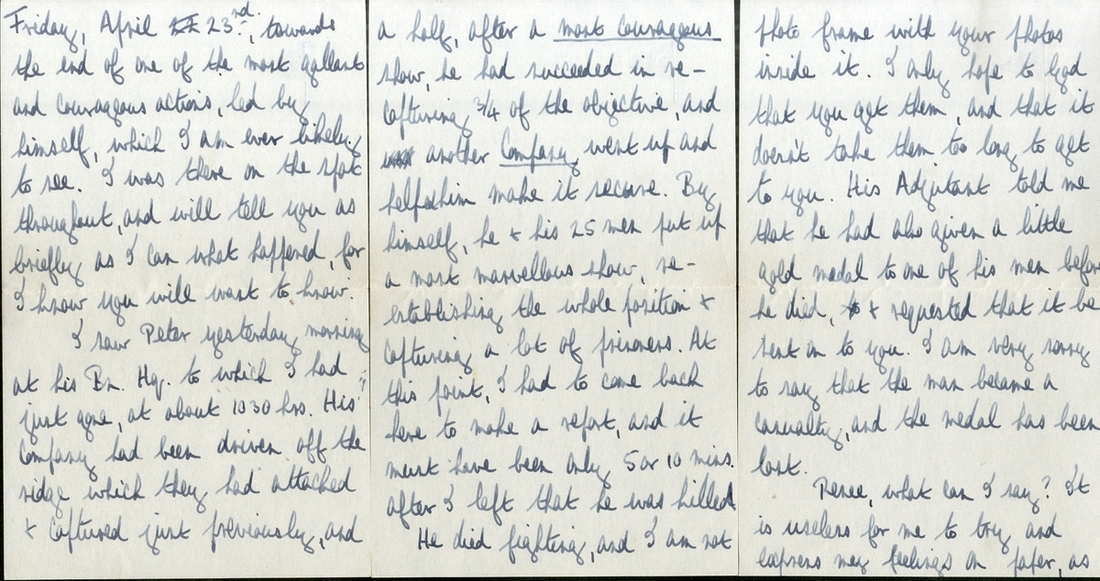 Friday, April 23rd, towards
the end of one of the most gallant
and courageous actions, led by
himself, which I am ever likely
to see. I was there on the spot
throughout, and will tell you as
briefly as I can what happened, for
I know you will want to know.
I saw Peter yesterday morning
at his Bn. Hq. to which I had
just gone, at about 1030 hrs. His
Company had been driven off the
ridge which they had attacked
& captured just previously, and
a half, after a most courageous
show, he had succeeded in re-
capturing 3/4 of the objective, and
another Company went up and
helped him make it secure. By
himself, he & his 25 men put up
a most marvellous show, re-
establishing the whole position &
capturing a lot of prisoners. At
this point, I had to come back
here to make a report, and it
must have been only 5 or 10 mins.
after I left that he was killed.
He died fighting, and I am not
photo frame with your photos
inside it. I only hope to God
that you get them, and that it
doesn't take them too long to get
to you. His Adjutant told me
that he had also given a little
gold medal to one of his men before
he died, & requested that it be
sent on to you. I am very sorry
to say that the man became a
casualty, and the medal has been
lost.
Renee, what can I say? It
is useless for me to try and
express my feelings on paper, as